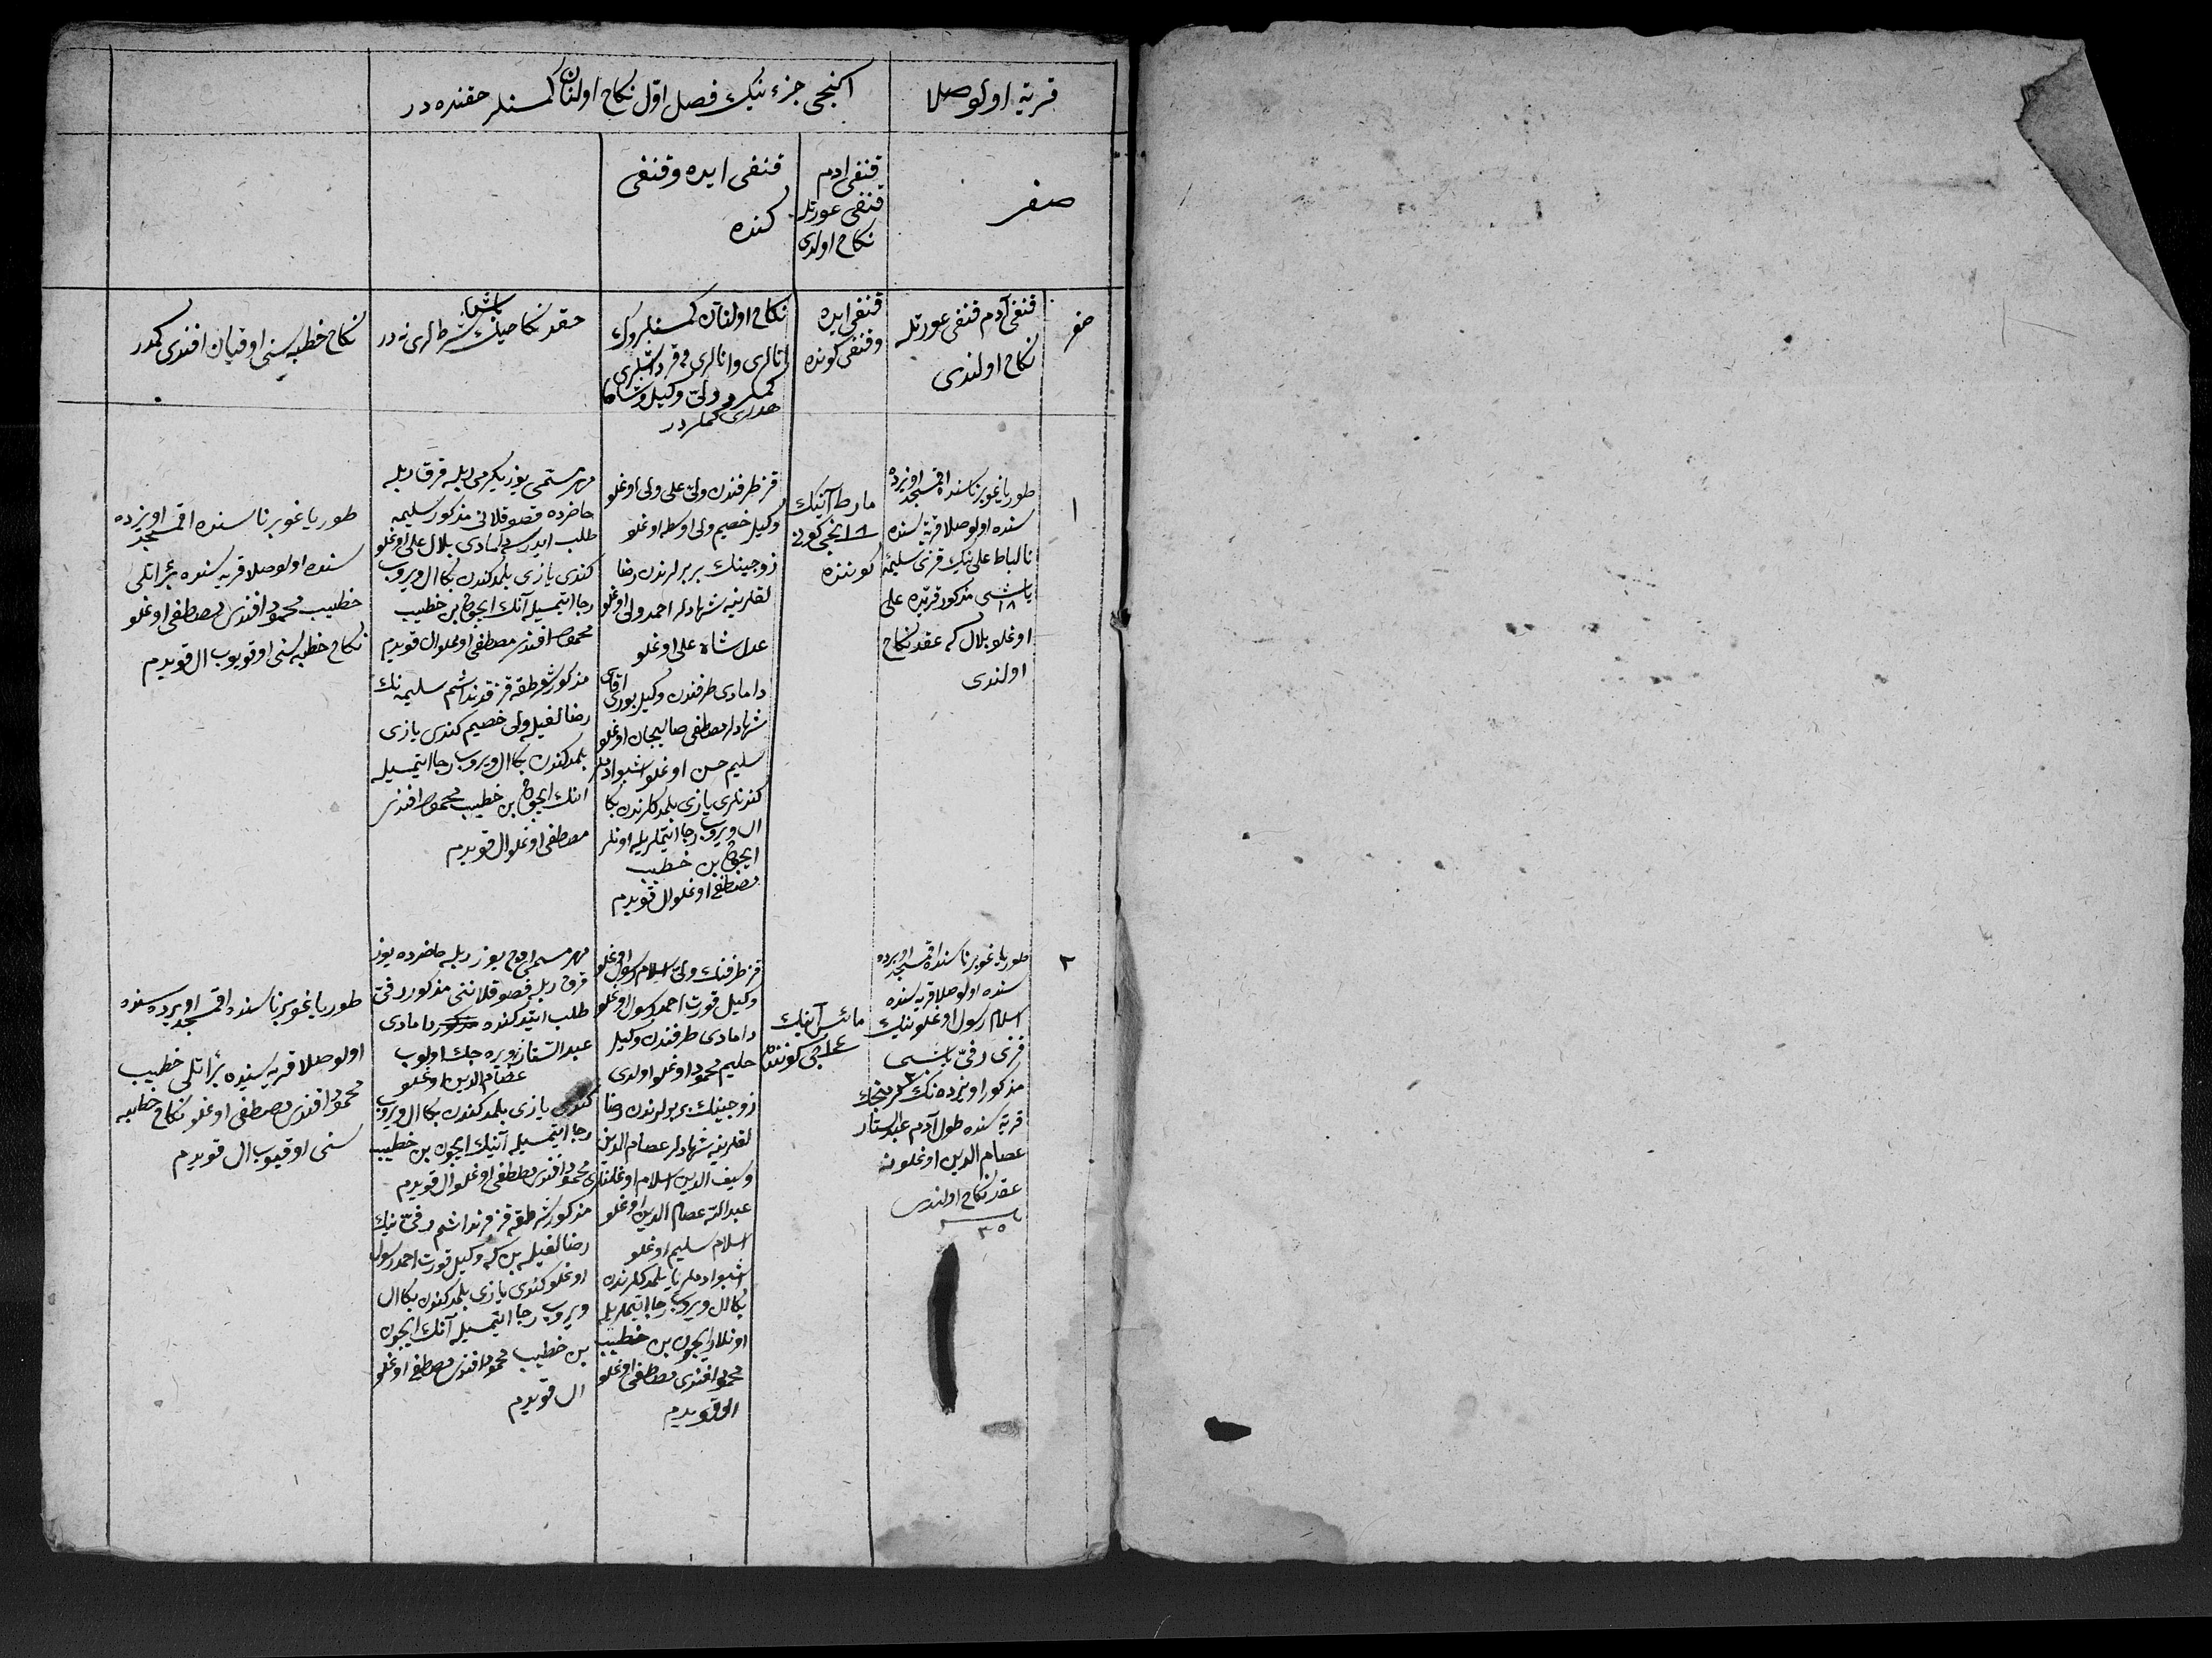 قریۀ اولوصلا
اکنجی جزء نیڭ فصل اوّل نکاح اولنان کمسنلر حقنده در
صفر
قنغی ادم
قنغی عورتله
نکاح اولدی
قنغی ایده وقنغی
کنده
صفر
قنغی آدم قنغی عورتله
نکاح اولندی
قنغی ایده
وقنغی کونده
نکاح اولنان کمسنلروڭ
اتالری وانالری و قرداشلری
کملر در ولیّ وکیل وشا
هدری کملر در
عقد نکاحینڭ باشقا شرطلری نه در
نکاح خطبه سنی اوقیان افندی کمدر
۱
طوریا غوبرناسنده اقمسجد اویزده
سنده اولوصلا قریه سنده
نالباط علی نیڭ قزی سلیمه
یاشی ۱۸ مذکور قریده علی
اوغلو بلال که عقد نکاح
اولندی
مارط آنیڭ
۱۶ نجی کونی
کوننده
قز طرفندن ولیّ علی ولی اوغلو
وکیل خصیم ولی اوسطه اوغلو
زوجینڭ بربرلرندن رضا
لقلرینه شهادلر احمد ولی اوغلو
عدل شاه علی اوغلو
دامادی طرفندن وکیل بورکی اقای
شهادلر مصطفی صالیجان اوغلو
سلیم حسن اوغلو اشبو ادملر
کندنلری یازی بلمدکلرندن بکا
ال ویروب رجا ایتملریله اونلر
ایچون بن خطیب
مصطفی اوغلو ال قویدم
مهر مسمی یوز یکرمی ربله قرق ربله
حاضرده قصوقلانی مذکور سلیمه
طلب ایدرسه دامادی بلال علی اوغلو
کندی یازی بلمدکندن بکا ال ویروب
رجا ایتمسیله آنڭ ایچون بن خطیب
محمود افندی مصطفی اوغلو ال قویدم
مذکور شرطقه قز قرنداشم سلیمه نڭ
رضالغیله ولی خصیم کندی یازی
بلمدکندن بکا ال ویروب رجا ایتمسیله
انڭ ایچون بن خطیب محمود افندی
مصطفی اوغلو ال قویدم
طوریا غوبرناسنده اقمسجد اویزده
سنده اولوصلا قریه سنده برٔاتلی
خطیب محمود افندی مصطفی اوغلو
نکاح خطبه سنی اوقویوب ال قویدم
۲
طوریا غوبرناسنده اقمسجد اویزده
سنده اولوصلا قریه سنده
اسلام رسول اوغلو نیڭ
قزی رفیّ یاشی
مذکور اویزده نڭ
قریه سنده طول آدم عبدالستار
عصام الدین اوغلونه
عقد نکاح اولندی
یاشی ۳۵
مائس آینڭ
کوننده
قز طرفنڭ ولیّ اسلام رسول اوغلو
وکیل قورت احمد رسول اوغلو
دامادی طرفندن وکیل
حلیم محمود اوغلو اولدی
زوجینڭ بربرلرندن رضا
لقلرینه شهادلر عصام الدین
وسیف الدین اسلام اوغلنلری
عبدالله عصام الدین اوغلو
اسلام سلیم اوغلو
اشبو ادملر یا بلمدکلرندن
بکا ال ویروب رجا ایتملریله
اونلار ایچون بن خطیب
محمود افندی مصطفی اوغلو
ال قویدم
مهر مسمی اوچ یوز ربله حاضرده یوز
قرق ربله قصوقلاننی مذکور رفیّ
طلب ایتدکنده مذکور دامادی
عبدالستار ویره جك اولوب
عصام الدین اوغلو
کندی یازی بلمدکندن بکا ال ویروب
رجا ایتمسیله آنیڭ ایچون بن خطیب
محمود افندی مصطفی اوغلو ال قویدم
مذکور شرطقه قز قرنداشم رفیّ نیڭ
رضالغیله بن که وکیل قورت احمد رسول
اوغلو کندی یازی بلمدکندن بکا ال
ویروب رجا ایتمسیله آنڭ ایچون
بن خطیب محمود افندی مصطفی اوغلو
ال قویدم
طوریا غوبرناسنده اقمسجد اویزده سنده
اولوصلا قریه سنده برٔاتلی خطیب
محمود افندی مصطفی اوغلو نکاح خطبه
سنی اوقیوب ال قویدم